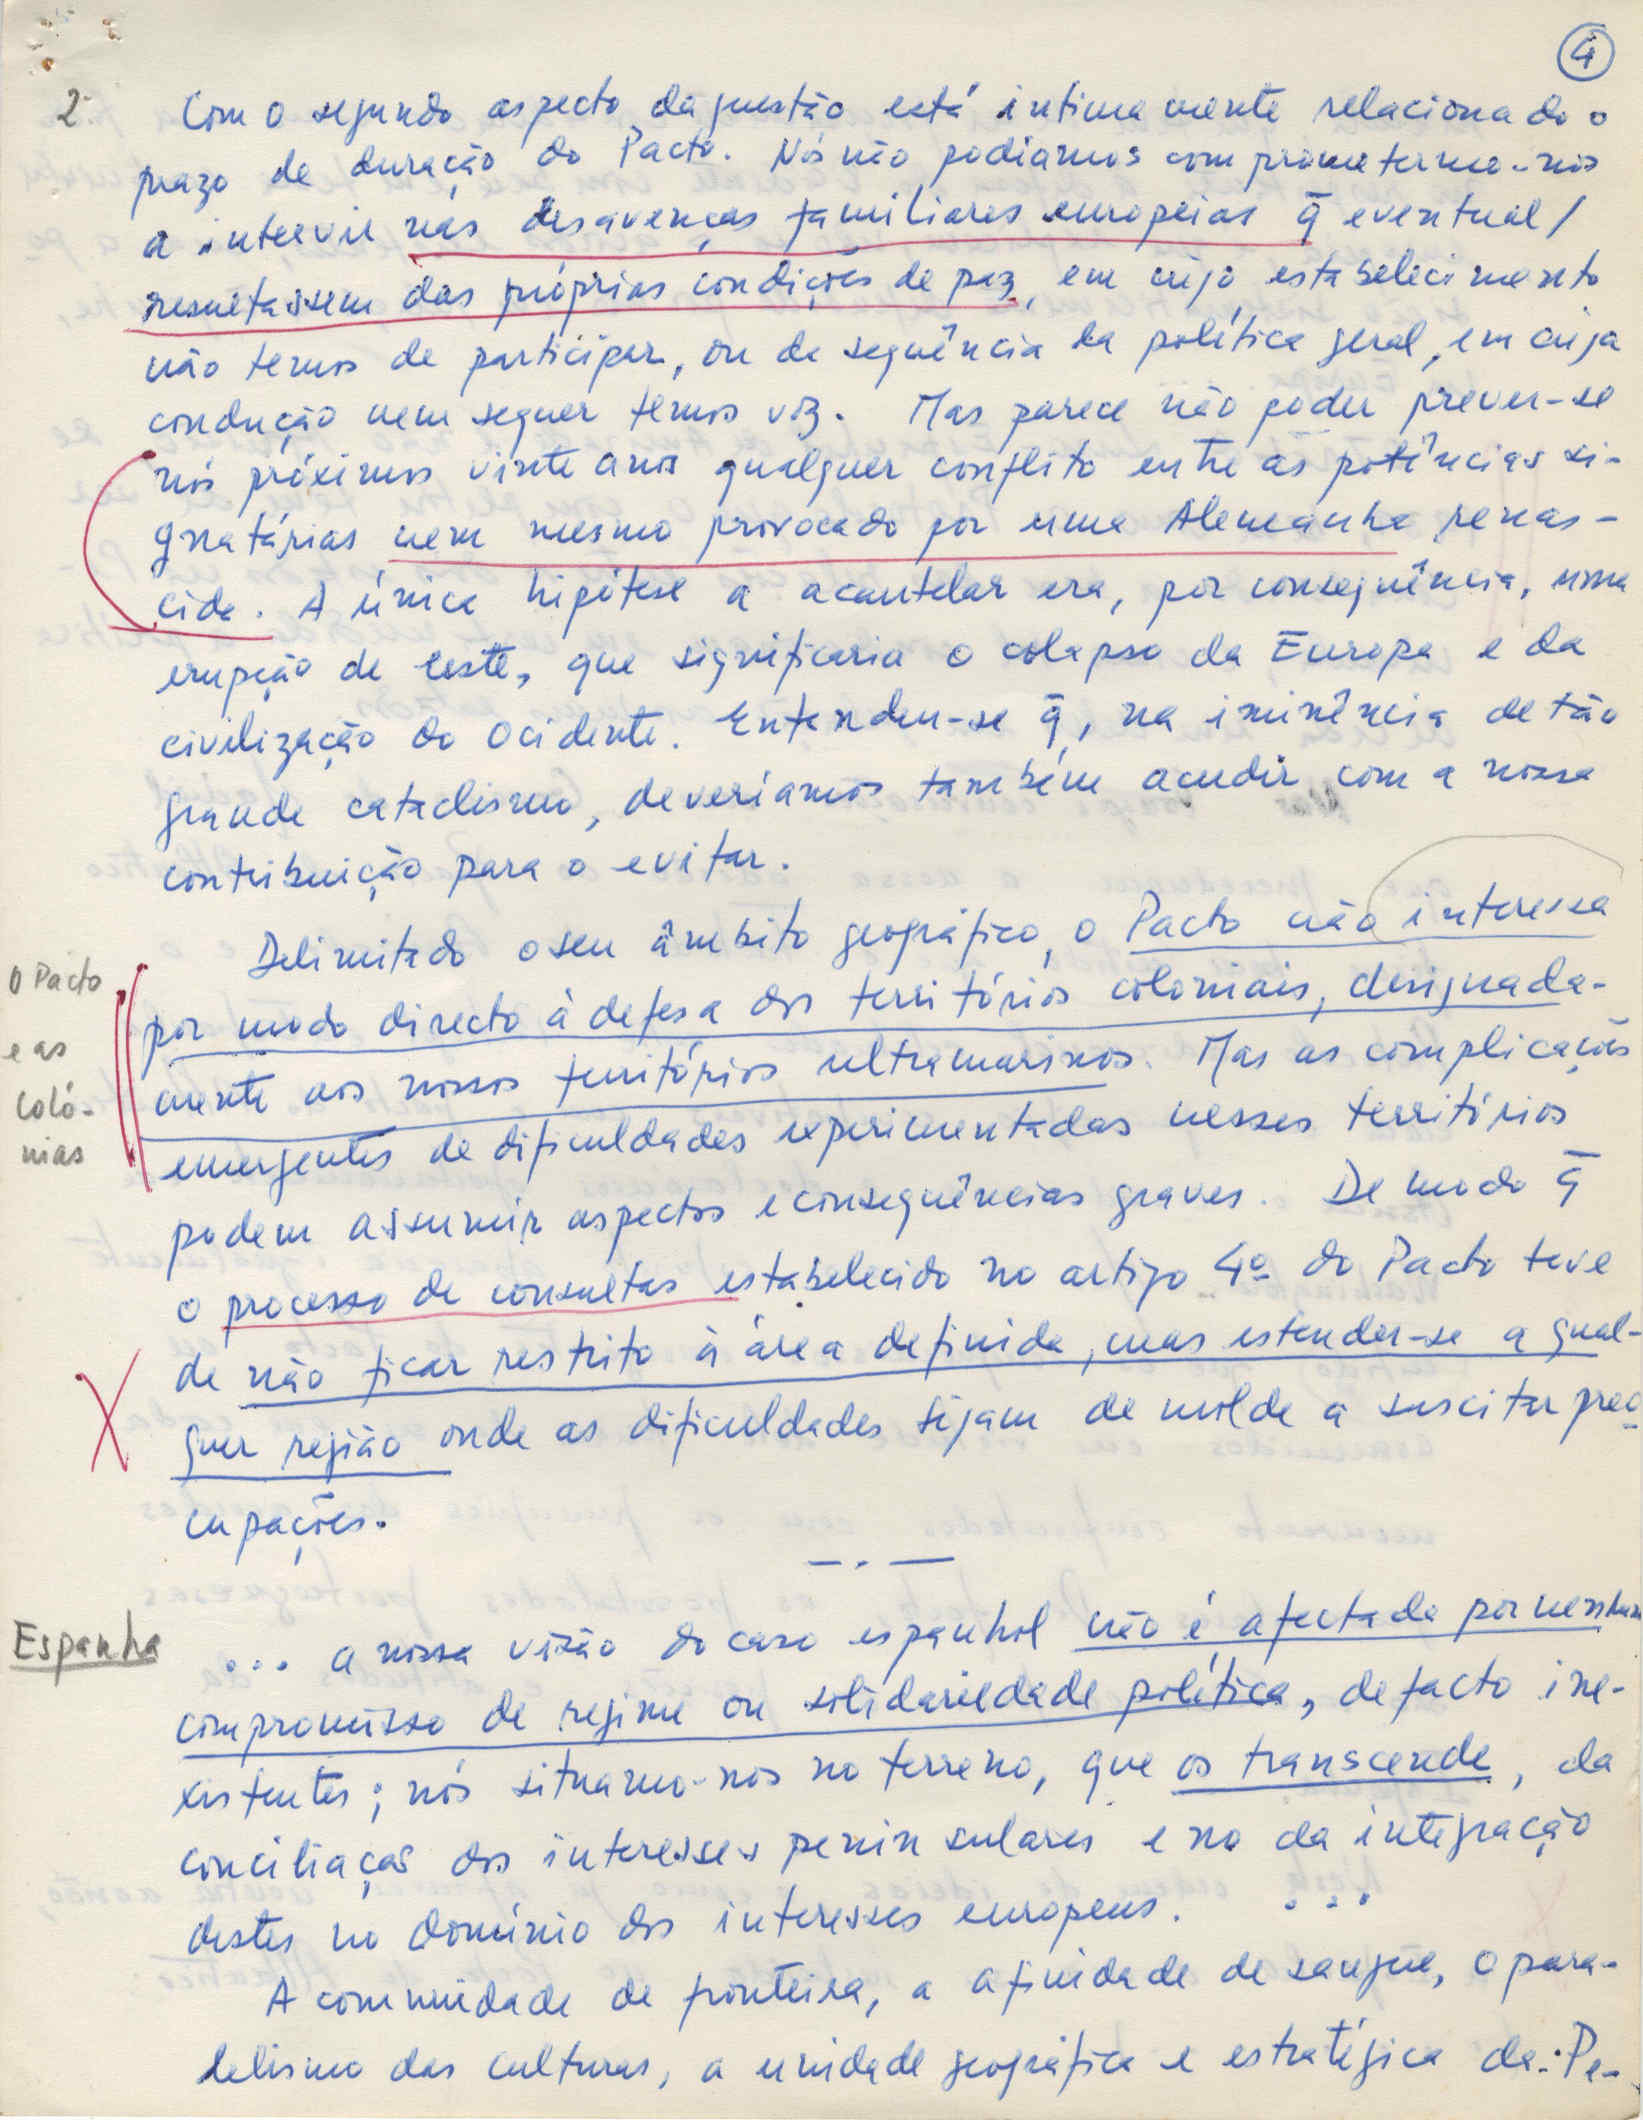 4
2. Com o segundo aspecto da questão está intimamente relacionado o
prazo de duração do Pacto. Nós não podíamos comprometermo-nos
a intervir nas desavenças familiares europeias q̄ eventual/
resultassem das próprias condições de paz, em cujo estabelecimento
não temos de participar, ou da sequência da política geral, em cuja
condução nem sequer temos voz. Mas parece não poder prever-se
nós próximos vinte anos qualquer conflito entre as potências si-
gnatárias nem mesmo provocado por uma Alemanha renas-
cida. A única hipótese a acautelar era, por consequência, uma
erupção de leste, que significaria o colapso da Europa e da
civilização do Ocidente. Entendeu-se q̄, na iminência de tão
grande cataclismo, deveríamos também acudir com a nossa
contribuição para o evitar.
Delimitado o seu âmbito geográfico, o Pacto não interessa
O Pacto
e as
Coló-
nias
por modo directo à defesa dos territórios coloniais, designada-
mente aos nossos territórios ultramarinos. Mas as complicações
emergentes de dificuldades experimentadas nesses territórios
podem assumir aspectos e consequências graves. De modo q̄
o processo de consultas estabelecido no artigo 4º do Pacto teve
de não ficar restrito à área definida, mas estender-se a qual-
quer região onde as dificuldades sejam de molde a suscitar preo-
cupações.
— . —
Espanha
... a nossa visão do caso espanhol não é afectada por nenhum
compromisso de regime ou solidariedade política, de facto ine-
xistentes; nós situamo-nos no terreno, que os transcende, da
conciliação dos interesses peninsulares e no da integração
destes no domínio dos interesses europeus. ...
A comunidade de fronteira, a afinidade de sangue, o para-
lelismo das culturas, a unidade geográfica e estratégica da Pe-